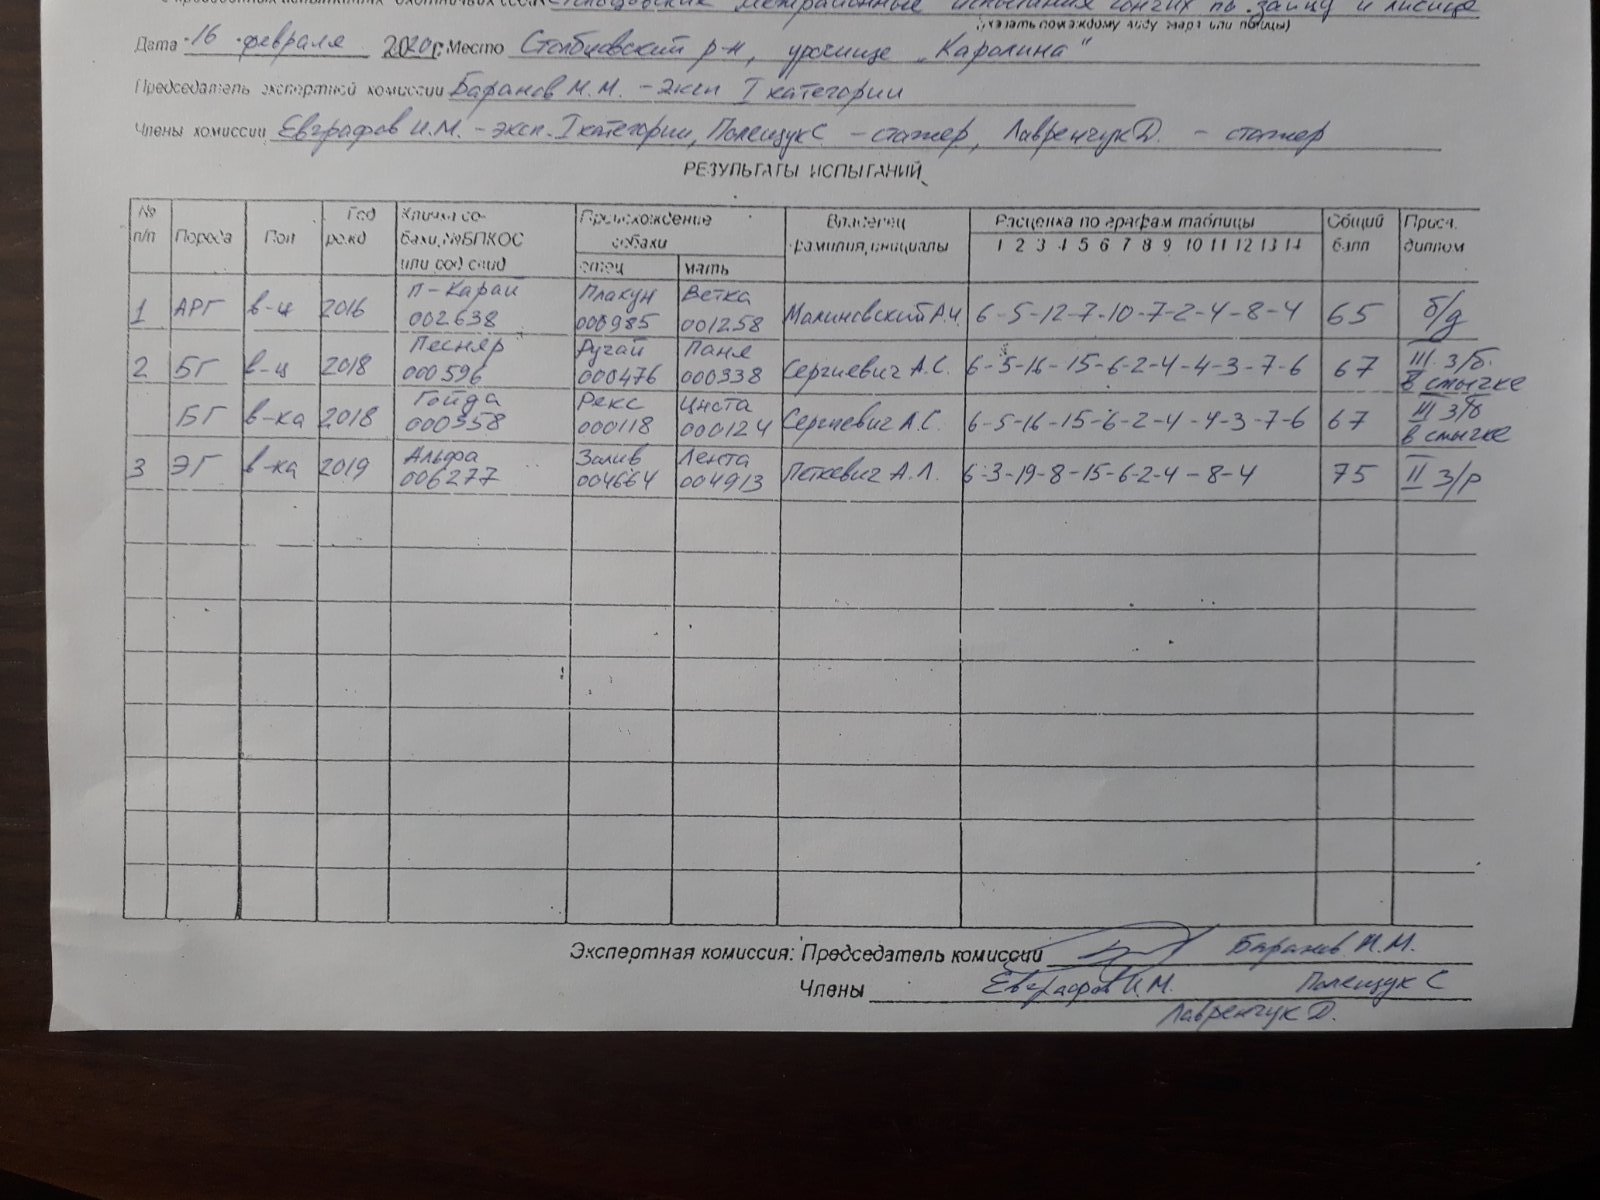 о проведенных испытаниях охотничьих собак Столбцовских межрайонные испытания гончих по зайцу и лисице
(указать по каждому виду зверя или птицы)
Дата 16 февраля 2020г. Место Столбцовский р-н, урочище "Каролина"
Председатель экспертной комиссии Баранов И.М. - эксп I категории
Члены комиссии Евграфов И.М. - эксп. I категории, Полещук С - стажер, Лавренчук Д. - стажер
РЕЗУЛЬТАТЫ ИСПЫТАНИЙ
№ п/п Порода Пол Год рожд Кличка собаки, №БПКОС или род свид Происхождение собаки отец мать Владелец фамилия, инициалы Расценка по графам таблицы 1 2 3 4 5 6 7 8 9 10 11 12 13 14 Общий балл Присв. диплом
1 АРГ в-ц 2016 П-Карай 002638 Плакун 000985 Ветка 001258 Малиновский А.И. 6-5-12-7-10-7-2-4-8-4 65 б/д
2 БГ в-ц 2018 Песняр 000596 Ругай 000476 Паня 000338 Сергиевич А.С. 6-5-16-15-6-2-4-4-3-7-6 67 III з/б. в смычке
БГ в-ка 2018 Гойда 000558 Рекс 000118 Циста 000124 Сергиевич А.С. 6-5-16-15-6-2-4-4-3-7-6 67 III з/б в смычке
3 ЭГ в-ка 2019 Альфа 006277 Залив 004664 Лента 004913 Петкевич А.Л. 6-3-19-8-15-6-2-4-8-4 75 II з/р
Экспертная комиссия: Председатель комиссии Баранов И.М.
Члены Евграфов И.М. Полещук С
Лавренчук Д.